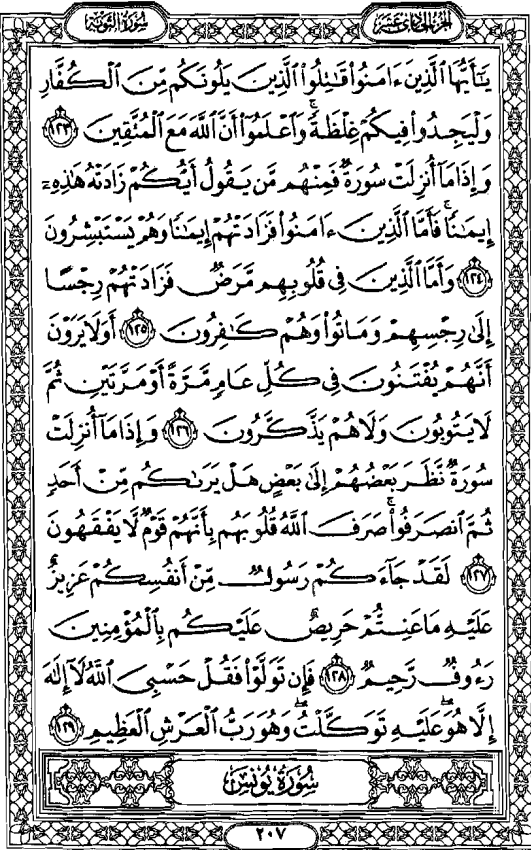 سورة التوبة
الجزء الحادي عشر
يَـٰٓأَيُّهَا ٱلَّذِينَ ءَامَنُوا۟ قَـٰتِلُوا۟ ٱلَّذِينَ يَلُونَكُم مِّنَ ٱلْكُفَّارِ
وَلْيَجِدُوا۟ فِيكُمْ غِلْظَةً ۚ وَٱعْلَمُوٓا۟ أَنَّ ٱللَّهَ مَعَ ٱلْمُتَّقِينَ ١٢٣
وَإِذَا مَآ أُنزِلَتْ سُورَةٌ فَمِنْهُم مَّن يَقُولُ أَيُّكُمْ زَادَتْهُ هَـٰذِهِۦٓ
إِيمَـٰنًا ۚ فَأَمَّا ٱلَّذِينَ ءَامَنُوا۟ فَزَادَتْهُمْ إِيمَـٰنًا وَهُمْ يَسْتَبْشِرُونَ
١٢٤ وَأَمَّا ٱلَّذِينَ فِى قُلُوبِهِم مَّرَضٌ فَزَادَتْهُمْ رِجْسًا
إِلَىٰ رِجْسِهِمْ وَمَاتُوا۟ وَهُمْ كَـٰفِرُونَ ١٢٥ أَوَلَا يَرَوْنَ
أَنَّهُمْ يُفْتَنُونَ فِى كُلِّ عَامٍ مَّرَّةً أَوْ مَرَّتَيْنِ ثُمَّ
لَا يَتُوبُونَ وَلَا هُمْ يَذَّكَّرُونَ ١٢٦ وَإِذَا مَآ أُنزِلَتْ
سُورَةٌ نَّظَرَ بَعْضُهُمْ إِلَىٰ بَعْضٍ هَلْ يَرَىٰكُم مِّنْ أَحَدٍ
ثُمَّ ٱنصَرَفُوا۟ ۚ صَرَفَ ٱللَّهُ قُلُوبَهُم بِأَنَّهُمْ قَوْمٌ لَّا يَفْقَهُونَ
١٢٧ لَقَدْ جَآءَكُمْ رَسُولٌ مِّنْ أَنفُسِكُمْ عَزِيزٌ
عَلَيْهِ مَا عَنِتُّمْ حَرِيصٌ عَلَيْكُم بِٱلْمُؤْمِنِينَ
رَءُوفٌ رَّحِيمٌ ١٢٨ فَإِن تَوَلَّوْا۟ فَقُلْ حَسْبِىَ ٱللَّهُ لَآ إِلَـٰهَ
إِلَّا هُوَ ۖ عَلَيْهِ تَوَكَّلْتُ ۖ وَهُوَ رَبُّ ٱلْعَرْشِ ٱلْعَظِيمِ ١٢٩
سُورَةُ يُونُسَ
٢٠٧